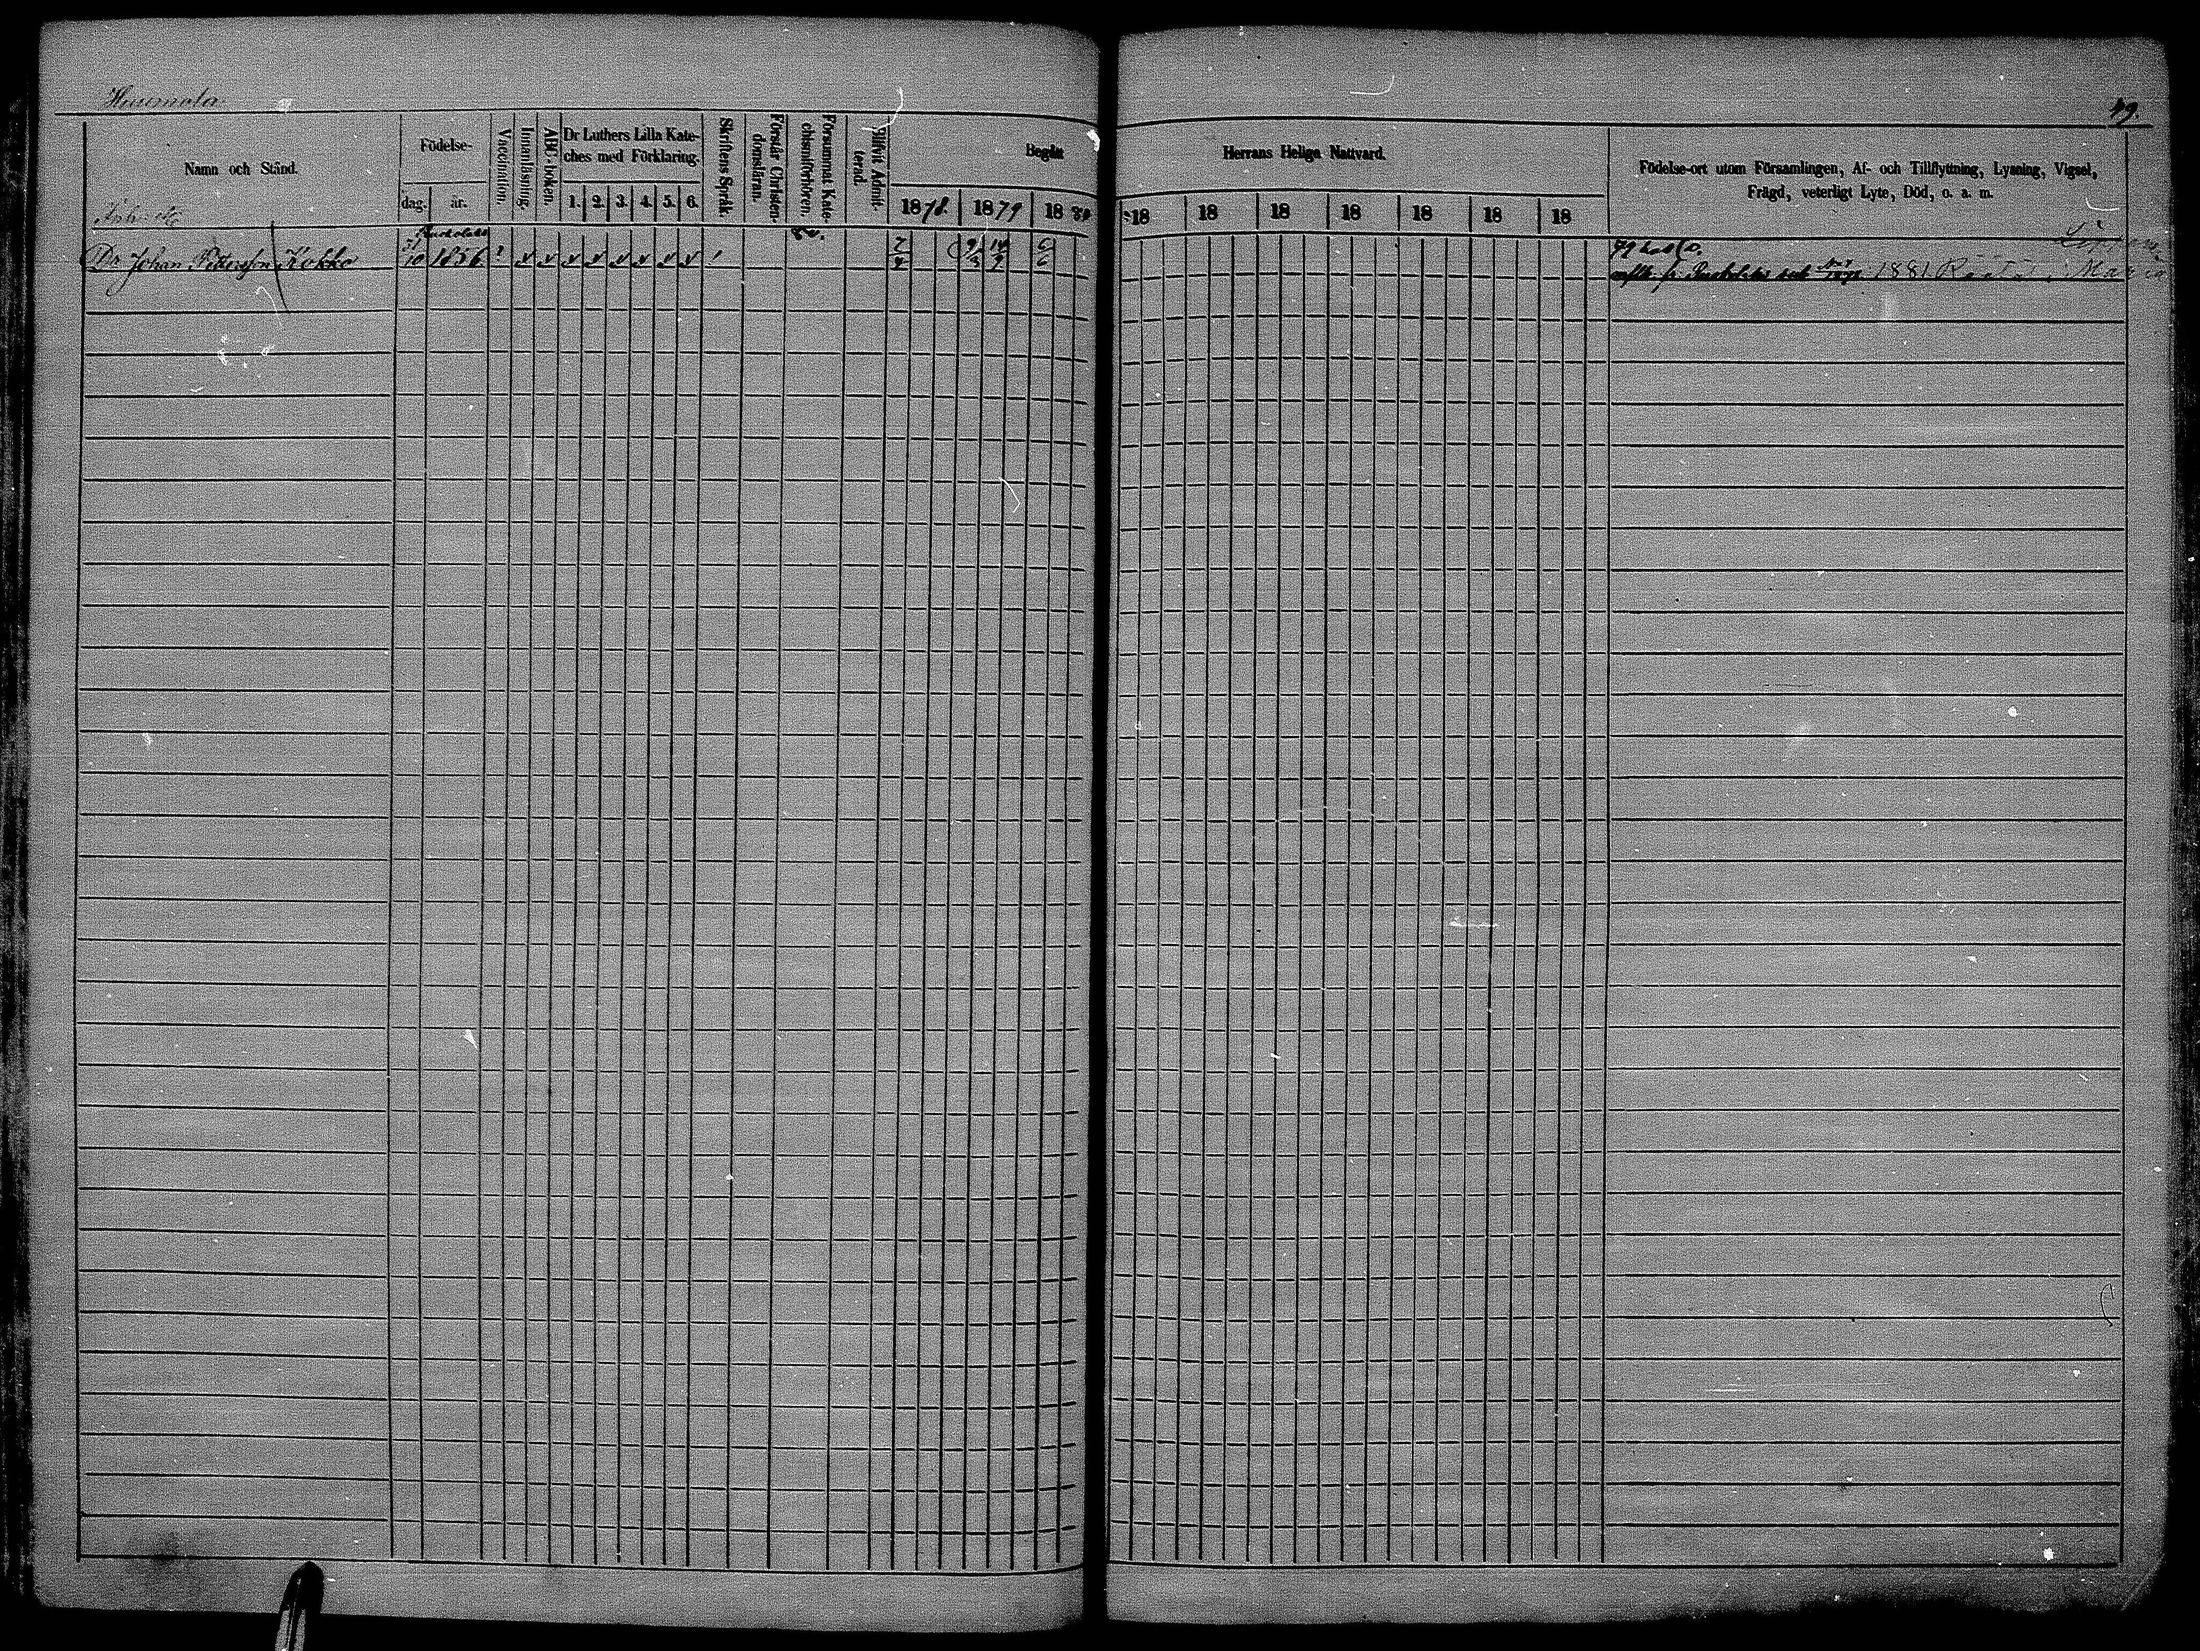 Haumola
49.
Namn och Stånd.
Födelse-
dag.
år.
Vaccination.
Innanläsning.
ABC-boken.
Dr Luthers Lilla Kate-
ches med Förklaring.
1. 2. 3. 4. 5. 6.
Skriftens Språk.
Förstår Christen-
domsläran.
Försummat Kate-
chismiförhören.
Blifvit Admit-
terad.
Begått
Herrans Heliga Nattvard.
1878. 1879 1880 18 18 18 18 18 18 18
Födelse-ort utom Församlingen, Af- och Tillflyttning, Lysning, Vigsel,
Frägd, veterligt Lyte, Död, o. a. m.
Dr. Johan Pettersson Kokko 31/10 1856
1881 Maria